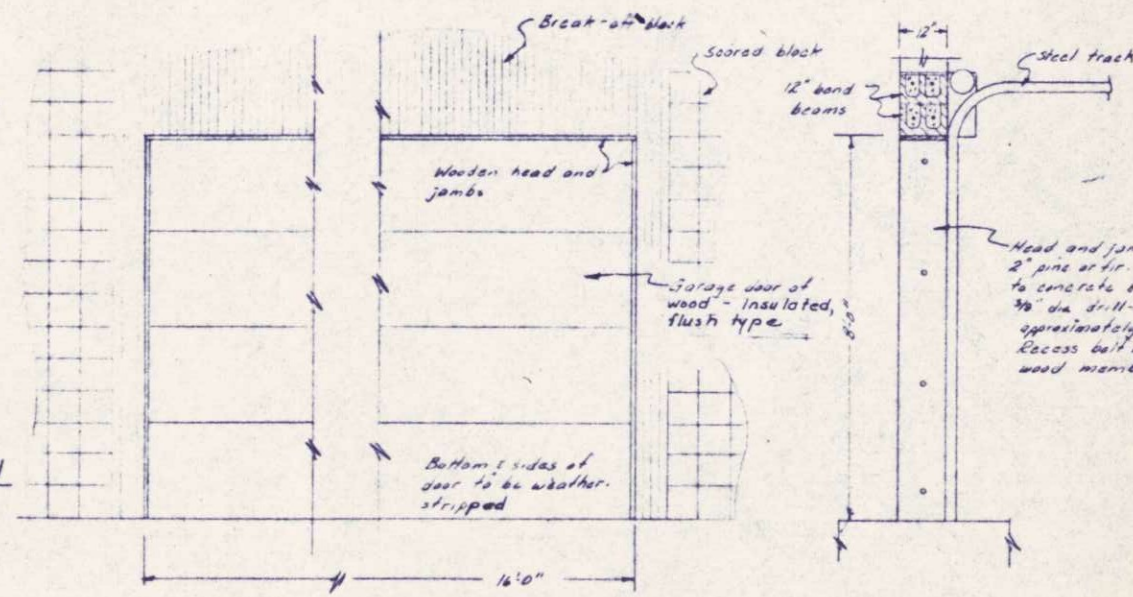 Break-off block
Scored block
Wooden head and
jambs
Garage door of
wood - insulated,
flush type
Bottom & sides of
door to be weather-
stripped
16'-0"
12"
Steel track
12" bond
beams
8'-0"
Head and jam
2" pine or fir.
to concrete b
3/8" dia drill-
approximately
Recess bolt
wood mem